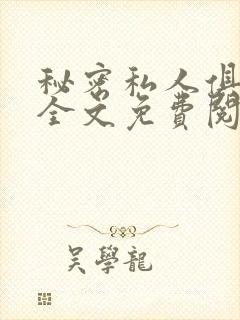 秘密私人俱
全文免費閱
吳學龍